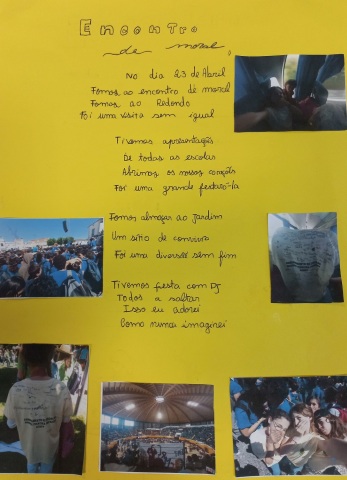 Encontro
de moral
No dia 23 de Abril
Fomos ao encontro de moral
Fomos ao Redondo
Foi uma visita sem igual
Tivemos apresentações
De todas as escolas
Abrimos os nossos corações
Foi uma grande
Fomos almoçar ao jardim
Um sítio de convívio
Foi uma diversão sem fim
Tivemos fiesta com DJ
Todos a saltar
Isso eu adorei
Como nunca imaginei